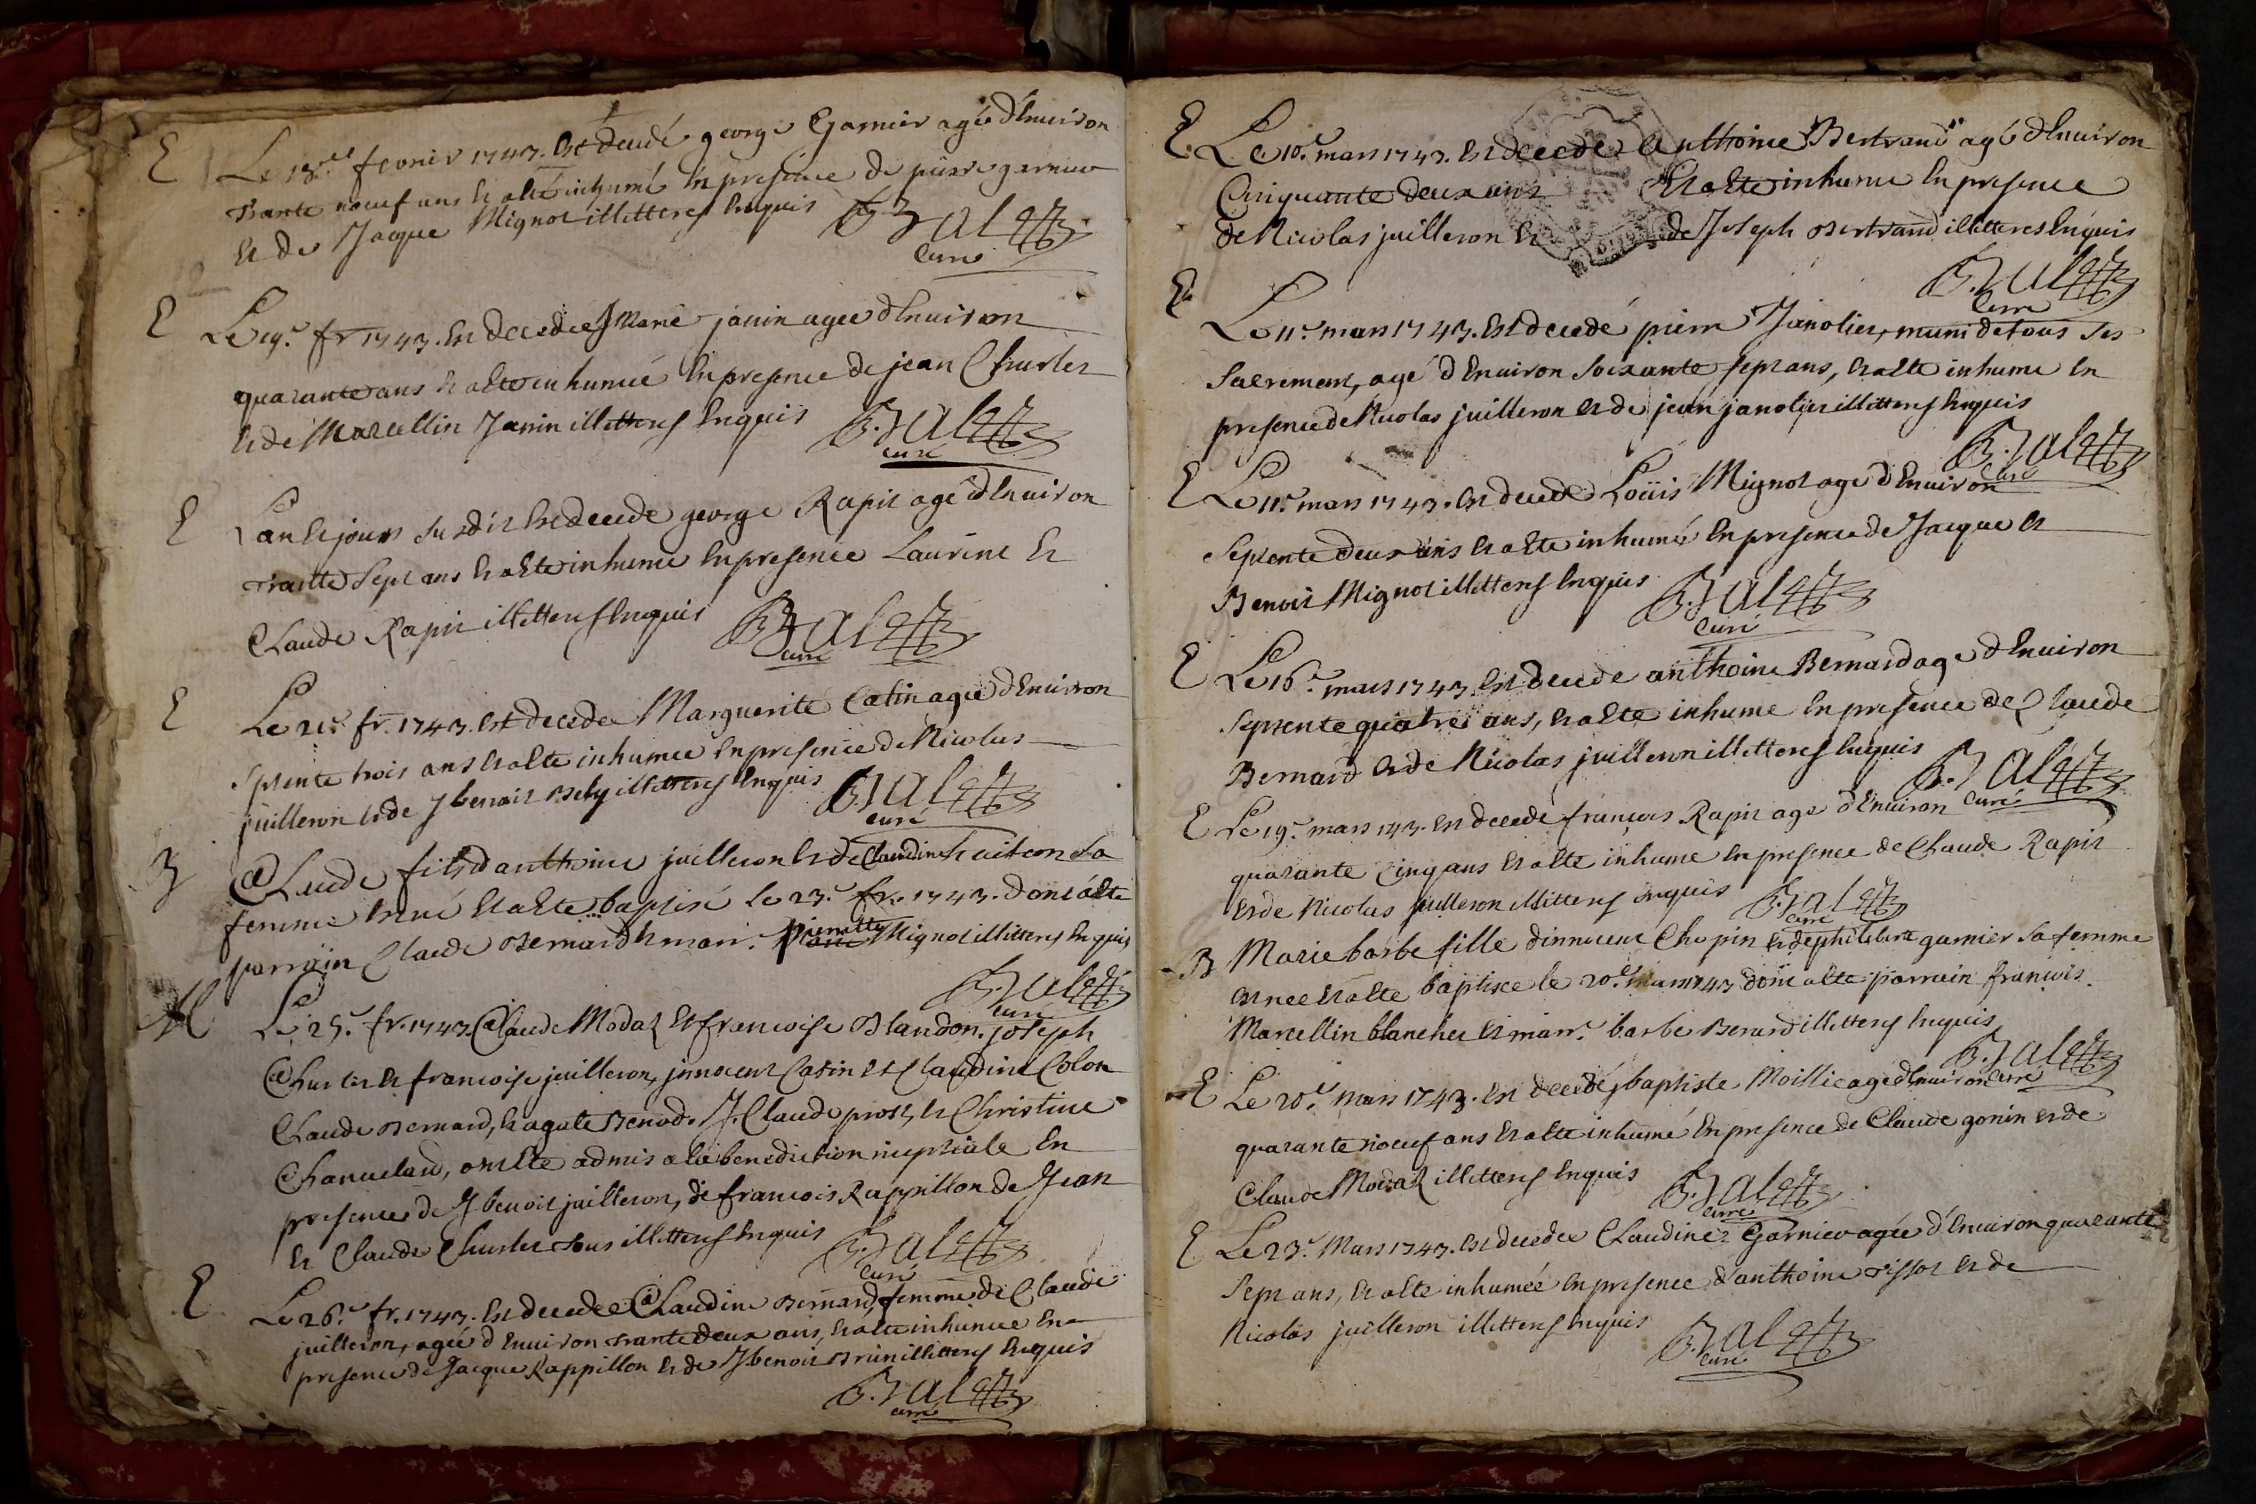 E Le 18.e fevrier 1743. Est decedé george Garnier agé d'Environ
trante noeuf ans Et a eté inhumé En presence de pierre garnier
Et de Jacque Mignot illitteres Enquis
curé
E Le 19.e fr. 1743. Est decedée J Marie janin agée d'Environ
quarante ans Et a Eté inhumée En presence de jean Charles
Et de Marcellin Janin illitteres Enquis
curé
E L'an Et jours susdit Est decedé george Rapit agé d'Environ
trante Sept ans Et a Eté inhumé En presence Laurent Et
Claude Rapit illitteres Enquis
curé
E Le 21.e fr. 1743. est decedée Marguerite Catin agée d'Environ
septente trois ans Et a Eté inhumée En presence de Nicolas
juilleron Et de J benoit Bely illitteres Enquis
curé
B Claude fils d'anthoine juilleron Et de Claudine sa
femme Est né Et a Eté baptisé le 23.e fr. 1743. dont a Eté
parrain Claude Bernard Et marr. pierrette Mignot illitteres Enquis
curé
M Le 25.e fr. 1743 Claude Modaz Et francoise Blandon. joseph
Charles Et francoise juilleron, jnnocent Catin Et Claudine Colon
Claude Bernard, Et agate Benod. J. Claude prost, Et Christine
Chanveland, ont Eté admis a la benediction nuptiale En
presence de J. benoit juilleron, de francois Rappillon de Jean
Et Claude Charles tous illitteres Enquis
curé
E Le 26.e fr. 1743. Est decedée Claudine Bernard femme de Claude
juilleron, agée d'Environ trante deux ans, Et a Eté inhumée En
presence de Jacque Rappillon Et de J benoit Brun illitteres Enquis
curé
E Le 10.e mars 1743. Est decedé Anthoine Bertrand agé d'Environ
Cinquante deux ans Et a Eté inhumé En presence
de Nicolas juilleron Et de Joseph Bertrand illitteres Enquis
curé
E Le 11.e mars 1743. Est decedé pierre Janolier, muni de tous Ses
Sacremens, agé d'Environ Soixante sept ans, Et a Eté inhumé En
presence de Nicolas juilleron Et de jean janolier illitteres Enquis
curé
E Le 11.e mars 1743. Est decedé Loüis Mignot agé d'Environ
Septente deux ans Et a Eté inhumé En presence de Jacque Et
Benoit Mignot illitteres Enquis
curé
E Le 16.e mars 1743. Est decedé anthoine Bernard agé d'Environ
Septente quatre ans, Et a Eté inhumé En presence de Claude
Bernard Et de Nicolas juilleron illitteres Enquis
curé
E Le 19.e mars 143. Est decedé françois Rapit agé d'Environ
quarante cinq ans Et a Eté inhumé En presence de Claude Rapit
Et de Nicolas juilleron illitteres enquis
curé
B Marie barbe fille d'innocent Chopin Et de philiberte garnier sa femme
Est nee Et a Eté baptisee le 20.e mars 1743 dont a Eté parrain francois
Marcellin blanchet Et marr.e barbe Berard illitteres Enquis
curé
E Le 20.e mars 1743. Est decedé jbaptiste Moillie agé d'Environ
quarante noeuf ans Et a Eté inhumé En presence de Claude gonin Et de
Claude Modaz illitteres Enquis
curé
E Le 23.e Mars 1743. Est decedée Claudine Garnier agée d'Environ quarante
Sept ans, Et a Eté inhumée En presence d'anthoine tissot Et de
Nicolas juilleron illitteres Enquis
curé